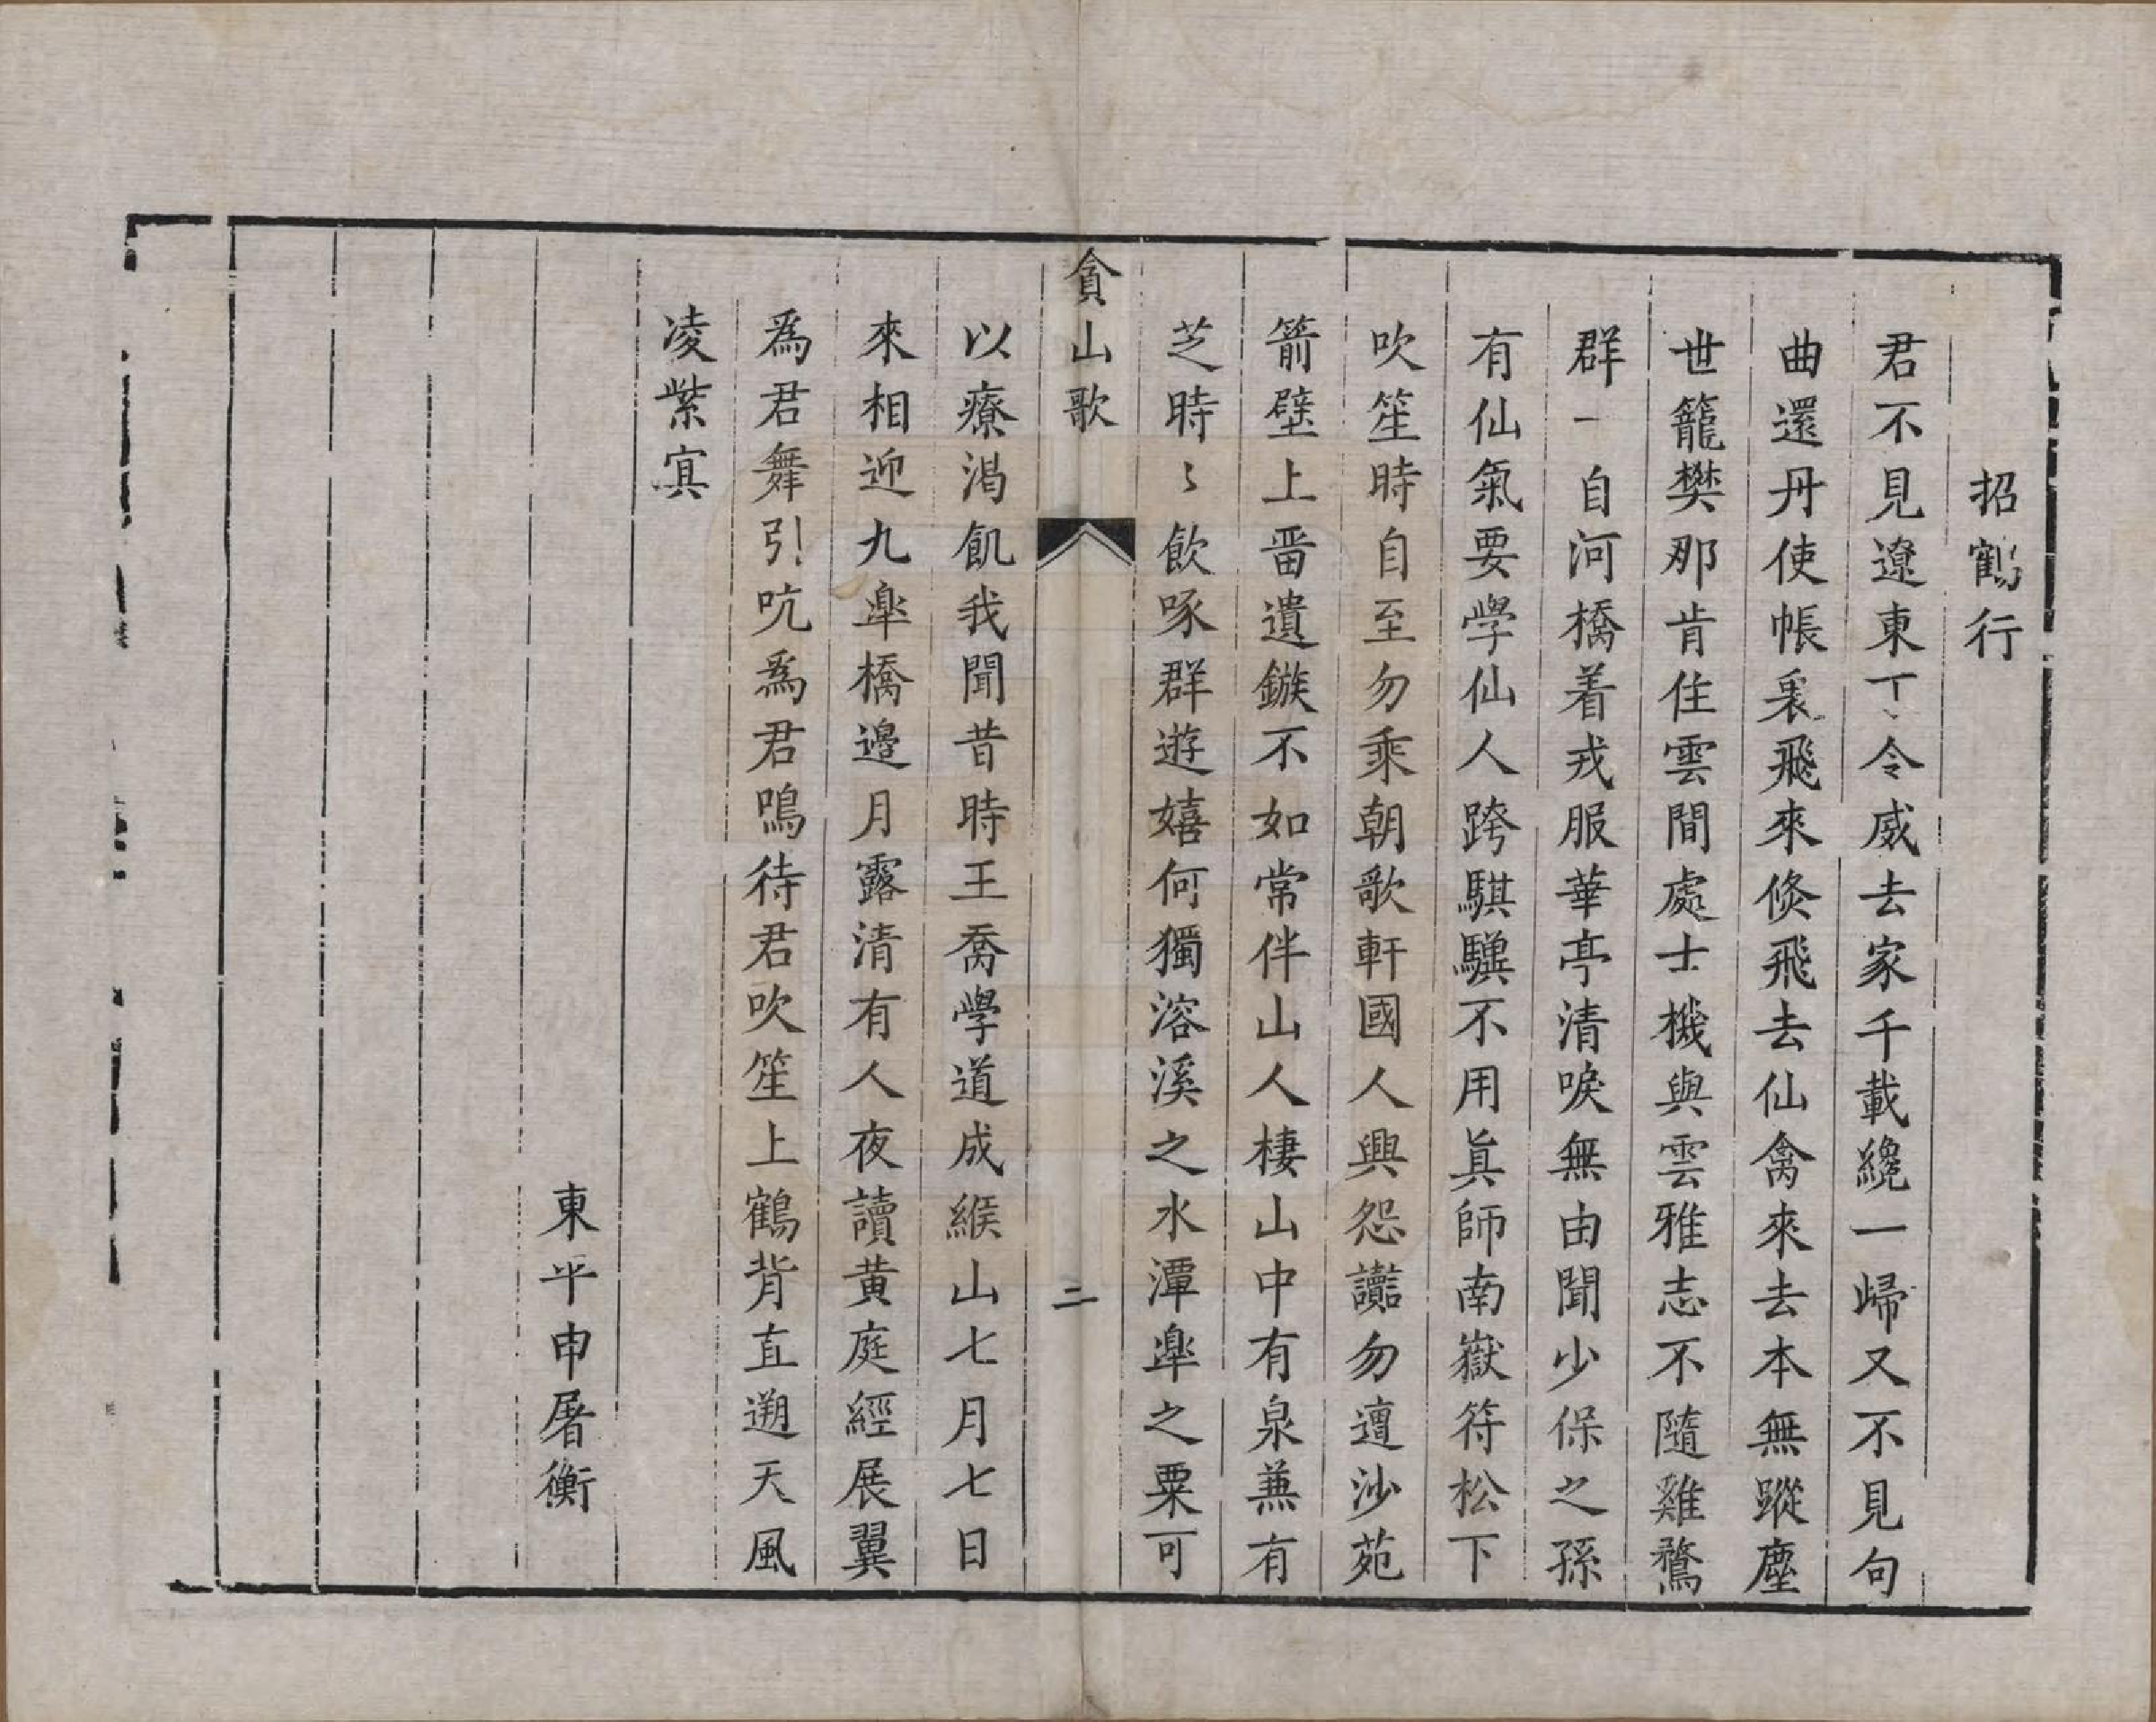 招鶴行
君不見遼東丁令威去家千載纔一歸又不見句
曲還丹使帳裏飛來倐飛去仙禽來去本無蹤塵
世籠樊那肯住雲間處士機與雲雅志不隨雞鶩
群一自河橋着戎服華亭清唳無由聞少保之孫
有仙氣要學仙人跨騏驥不用眞師南嶽符松下
吹笙時自至勿乘朝歌軒國人興怨讟勿邅沙苑
箭壁上畱遺鏃不如常伴山人棲山中有泉兼有
芝時〻飲啄群遊嬉何獨溶溪之水潭臯之粟可
貪山歌
二
以療渴飢我聞昔時王喬學道成緱山七月七日
來相迎九臯橋邊月露清有人夜讀黄庭經展翼
爲君舞引吭爲君鳴待君吹笙上鶴背直遡天風
凌紫寘
東平申屠衡